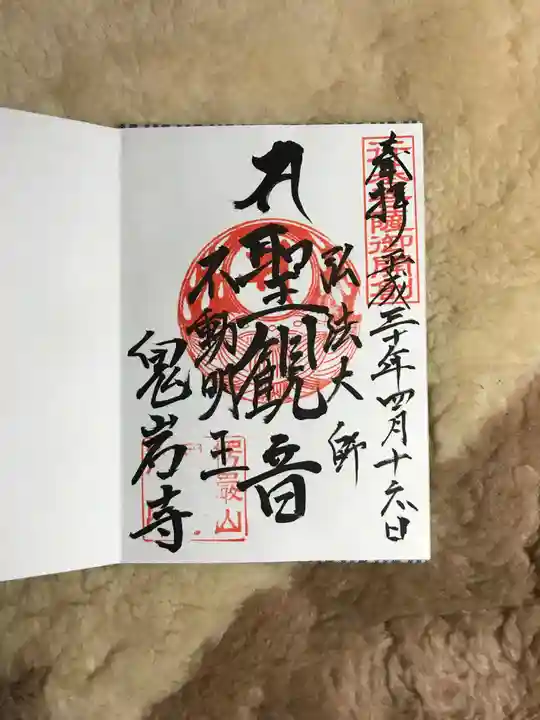 奉拝 平成三十年四月十六日
弘法大師
聖観音
不動明王
鬼岩寺